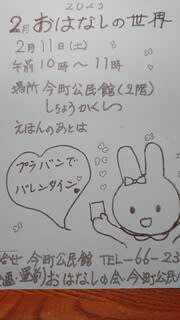 2023
2月おはなしの世界
2月11日(土)
午前10時〜11時
場所 今町公民館(2階)
しちょうかくしつ
えほんのあとは
プラバンで
バレンタイン
合せ 今町公民館 TEL-66-23
おはなしの会・今町公民